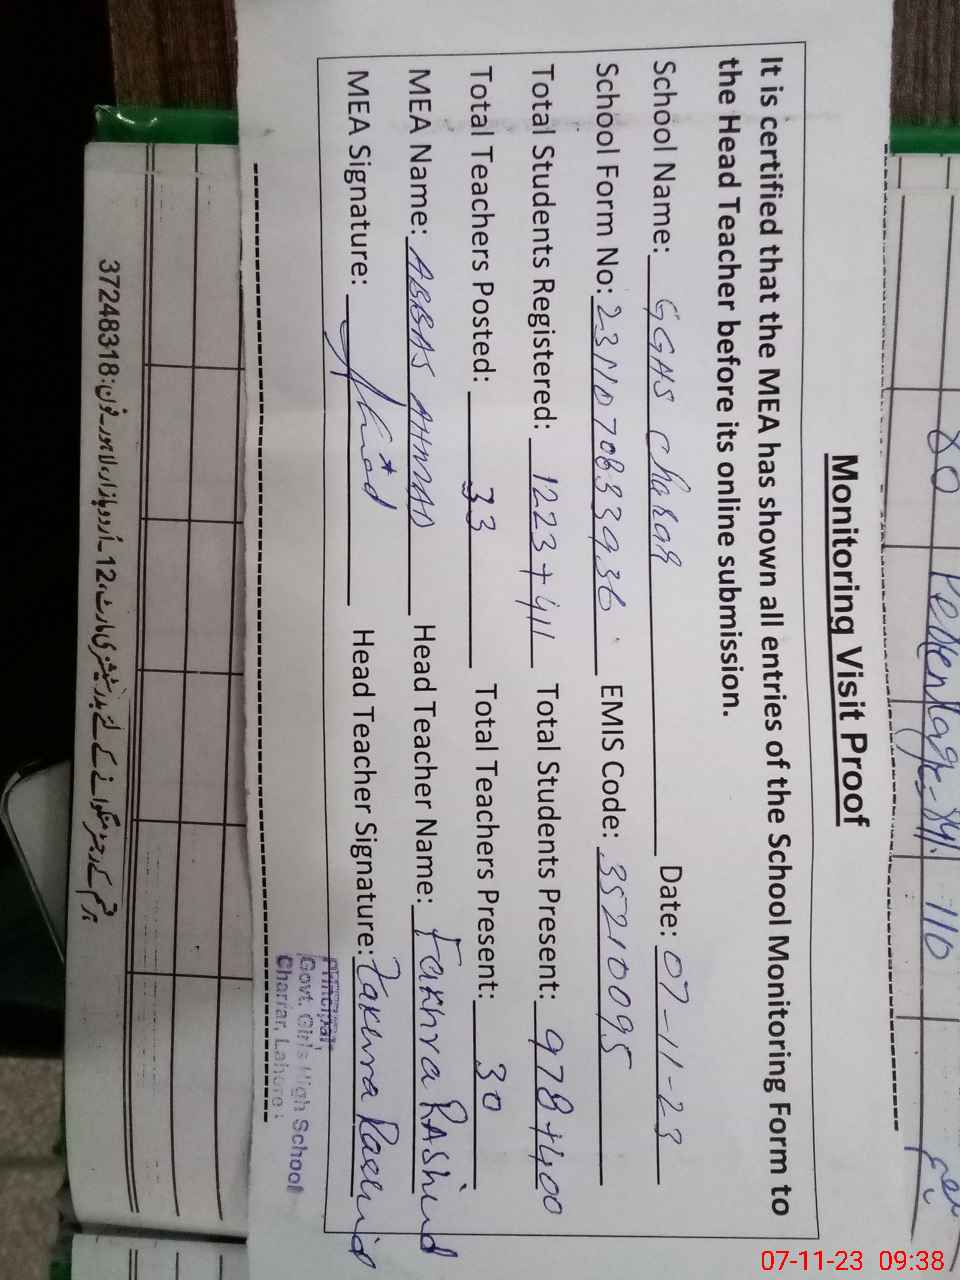 80 Percentage = 84% 110
Monitoring Visit Proof
It is certified that the MEA has shown all entries of the School Monitoring Form to
the Head Teacher before its online submission.
School Name: GGHS Charar Date: 07-11-23
School Form No: EMIS Code: 35210095
Total Students Registered: 1223+411 Total Students Present: 978+400
Total Teachers Posted: 33 Total Teachers Present: 30
MEA Name: ABBAS AHMAD Head Teacher Name: Fakhra RAShid
MEA Signature: Head Teacher Signature: Fakhra Rashid
Principal
Govt. Girls High School
Charrar, Lahore.
37248318
07-11-23 09:38